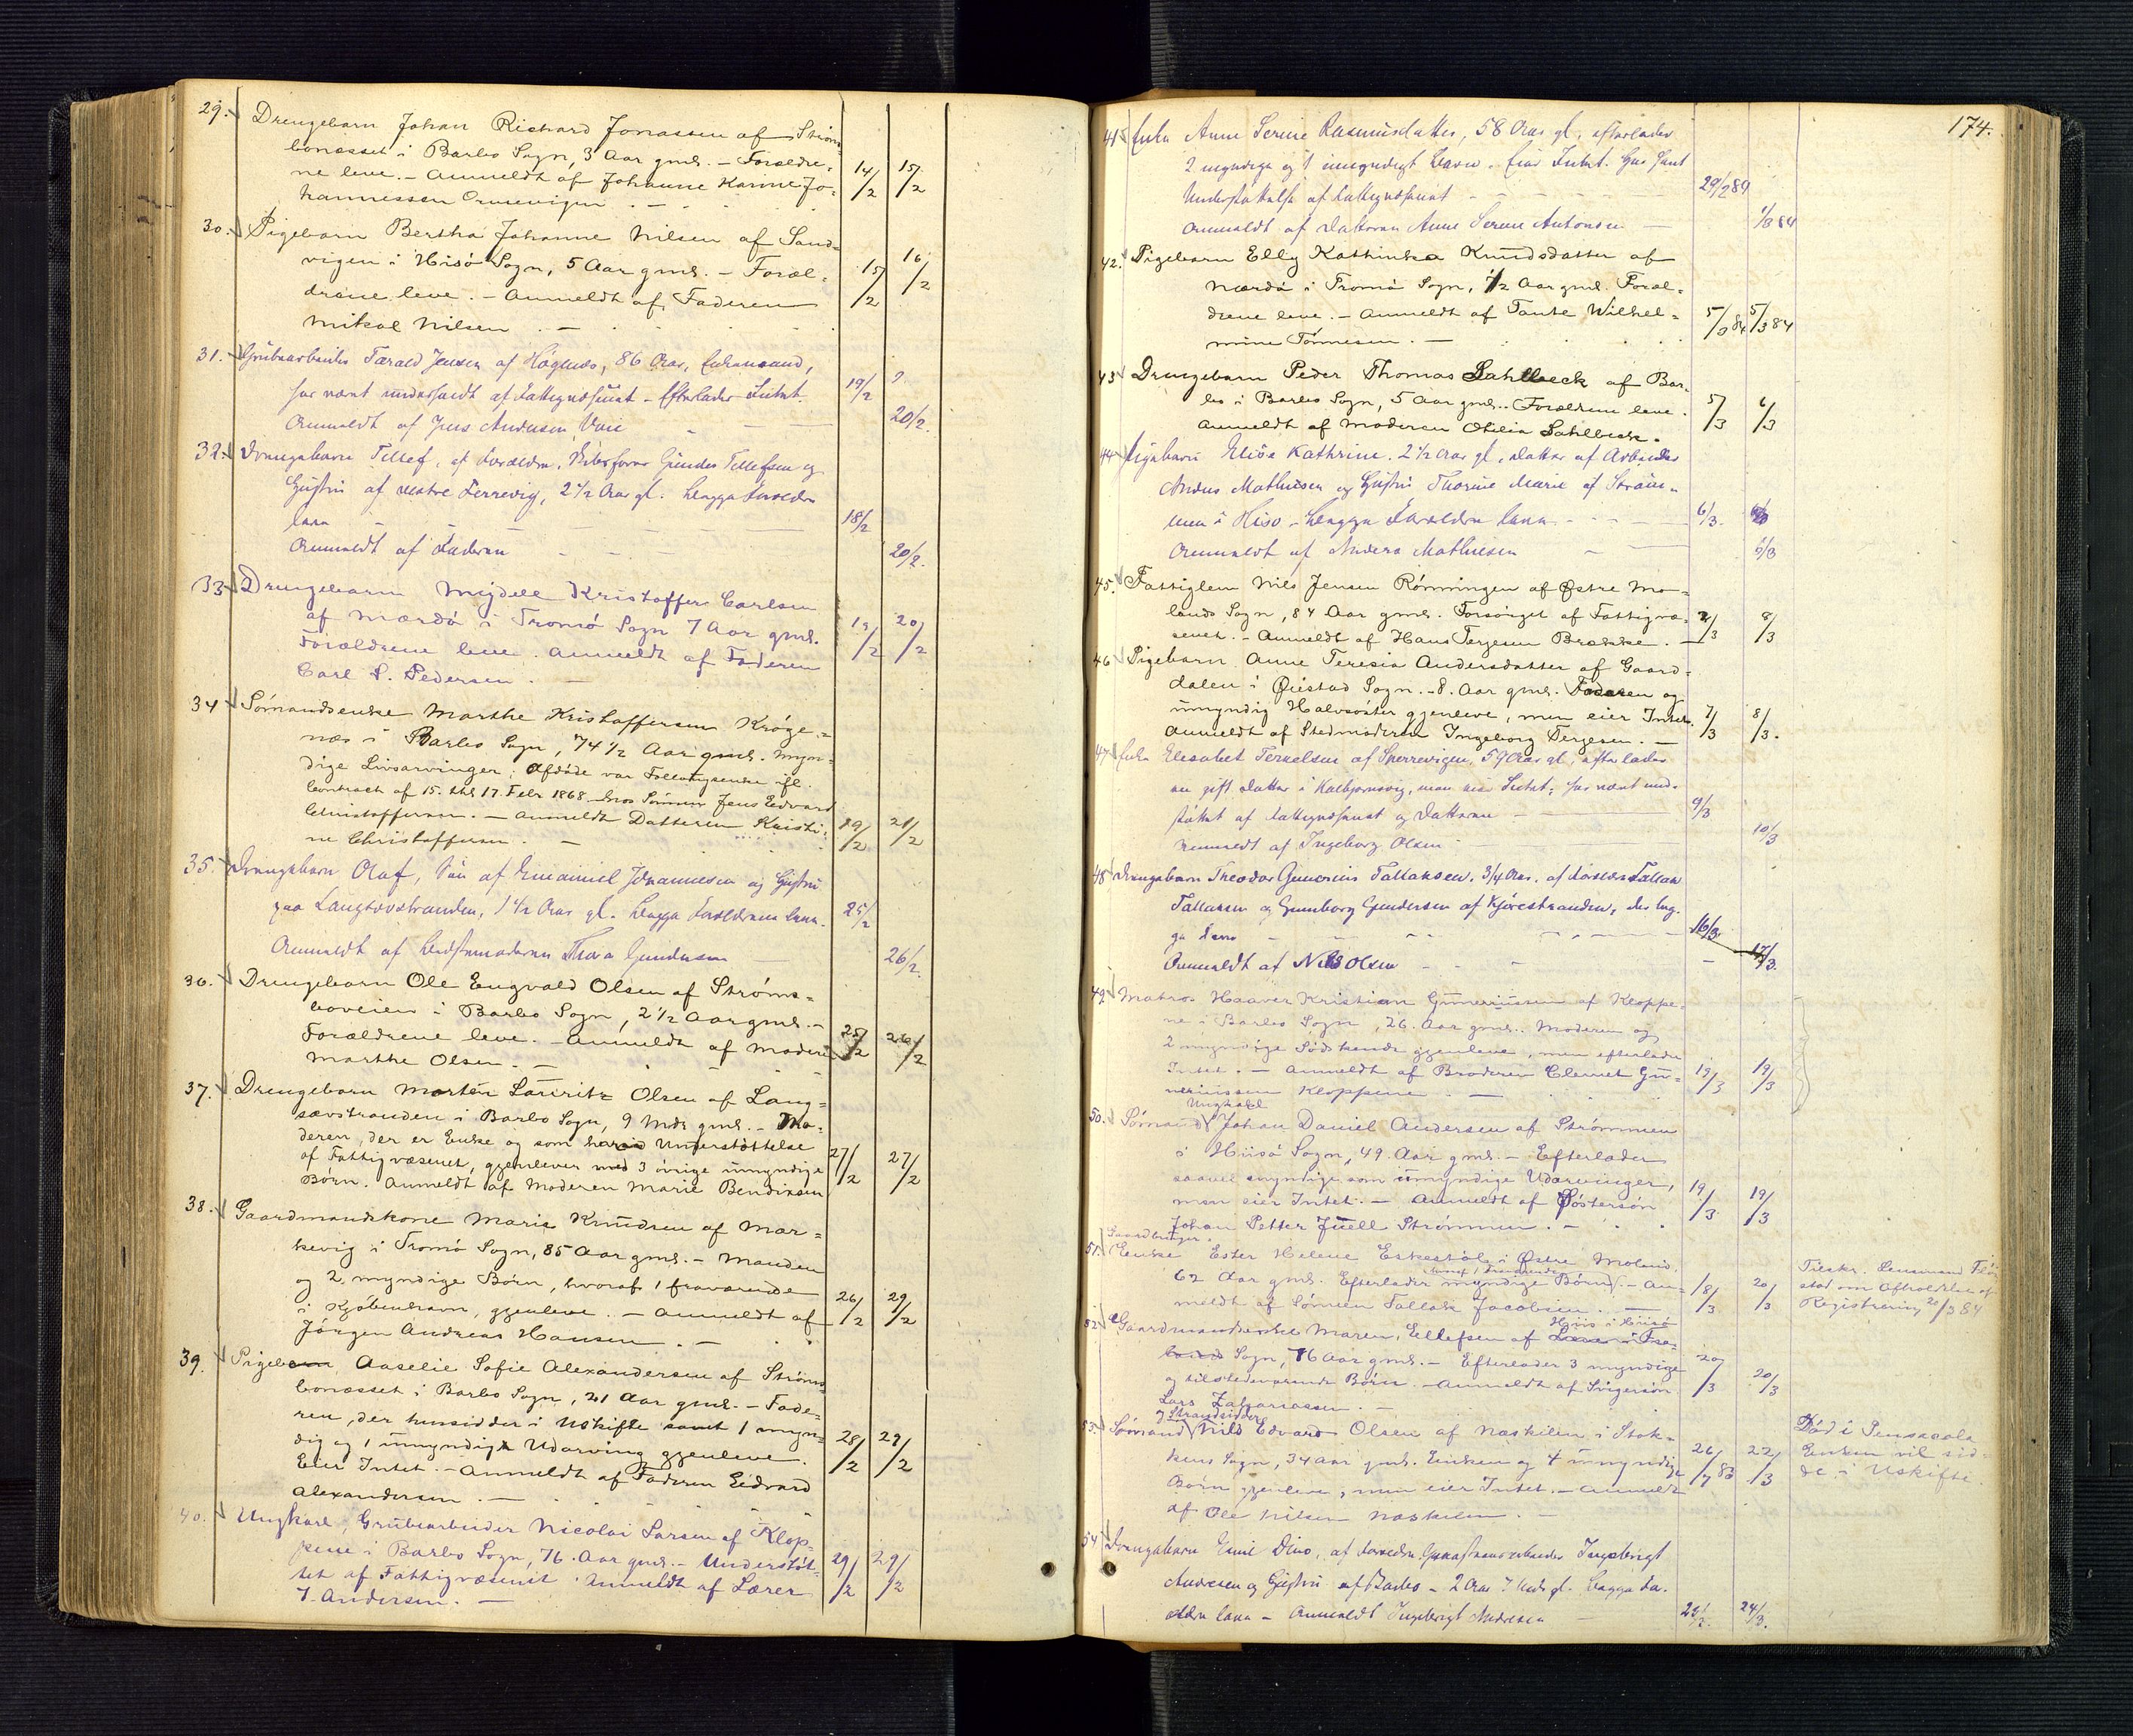 29. Drengebarn Johan Richard Jonassen af Strøms
bonæsset i Barbo Sogn, 3 Aar gml. - Forældre-
ne leve. - Anmeldt af Johanne Karine Jo- 14/2 15/2
hannessen
30. Pigebarn Bertha Johanne Nilsen af Sand-
vigen i Hisö Sogn, 5 Aar gml. - Foræl- 15/2 16/2
drene leve. - Anmeldt af Faderen
Mikal Nilsen . -
31. Grubearbeider Tarald Jensen af 86 Aar,
har været understøttet af Fattigvæsenet - Efterlader Intet. 19/2
Anmeldt af Jens Andersen Vrie 20/2.
32. Drengebarn Tellef, af Forældre, Gunder Tellefsen og
Hustru af vestre Ferrevig, 2 1/2 Aar gl. begge Forældre
leve 18/2
Anmeldt af Faderen 20/2.
33. Drengebarn Mydell Kristoffer Carlsen
af Mærdö i Tromö Sogn 7 Aar gml. 19/2 20/2
Forældrene leve. Anmeldt af Faderen
Carl S. Pedersen . -
34 Sömandsenke Marthe Kristoffersen Kröge-
næs i Barbo Sogn, 74 1/2 Aar gml. Myn-
dige Livsarvinger. Afdöde var Föderaadsenke ifl.
Contract af 15. thl 17. Febr 1868 hos Sönnen Jens Edvard
Christoffersen. - Anmeldt Datteren Kristi- 19/2 21/2
ne Christoffersen . -
35. Drengebarn Olaf, Sön af Emanuel Johannesen og Hustru
paa Langsævstranden, 1 1/2 Aar gl. begge Forældrene leve. 25/2
Anmeldt af Bedstemoderen Thora Gundersen 26/2.
36. Drengebarn Ole Engvald Olsen af Ströms-
boveien i Barbo Sogn, 2 1/2 Aar gml. -
Forældrene leve. - Anmeldt af Moderen 25/2 26/2
Marthe Olsen . -
37. Drengebarn Morten Lauritz Olsen af Lang-
sævstranden i Barbo Sogn, 9 Mdr gml. - Mo-
deren, der er Enke og som har Understöttelse
af Fattigvæsenet, gjenlever med 3 övrige umyndige 27/2 27/2
Börn. Anmeldt af Moderen Marie Bendixsen
38. Gaardmandskone Maria Knudsen af Mar-
kevig i Tromö Sogn, 85 Aar gml. - Manden
og 2 myndige Börn, hvoraf 1 fraværende
i Kjöbenhavn, gjenleve. - Anmeldt af 26/2 29/2
Jörgen Andreas Hansen . -
39. Pige Aaselie Sofie Alexandersen af Ströms
bonæsset i Barbo Sogn, 21 Aar gml. - Fade-
ren, der hensidder i Uskifte samt 1 myn-
dig og 1 umyndig Udarving gjenleve. 28/2 29/2
Eier Intet. - Anmeldt af Faderen Edvard
Alexandersen . -
40. Ungkarl, Grubearbeider Nicolai Larsen af Klop-
pene i Barbo Sogn, 76 Aar gml. - Understöt-
tet af Fattigvæsenet. Anmeldt af Lærer 29/2 29/2
T. Andersen. -
174.
41 Enke Anne Serine Rasmusdatter, 58 Aar gl, efterlader
2 myndige og 1 umyndigt Barn. Eier Intet. Har havt
Understöttelse af Fattigvæsenet - 29/2 84
Anmeldt af Datteren Anne Serine Antonsen 1/3 84
42. Pigebarn Elly Kathinka Knudsdatter af
Mærdö i Tromö Sogn, 1/2 Aar gml. Foræl-
drene leve. - Anmeldt af Tante Wilhel- 5/3 84 5/3 84
mine Tönnesen. -
43 Drengebarn Peder Thomas Sahlbeck af Bar-
bo i Barbo Sogn, 5 Aar gml. - Forældrene leve. 5/3 6/3
Anmeldt af Moderen Otilia Sahlbeck.
44 Pigebarn Elise Kathrine. 2 1/2 Aar gl. Datter af Arbeider
Anders Mathisen og Hustru Thorine Marie af Ström-
men i Hisö. - Begge Forældre leve 6/3.
Anmeldt af Anders Mathiesen 6/3
45. Fattiglem Nils Jensen Rönningen af Østre Mo-
lands Sogn, 84 Aar gml. Forsörget af Fattigvæ-
senet. - Anmeldt af Hans Terjesen Brække. 8/3
46 Pigebarn Anne Teresia Andersdatter af Gaard-
dalen i Øiestad Sogn. - 8. Aar gml. Faderen og
umyndig Halvsöster gjenleve, men eier Intet. 7/3 8/3.
Anmeldt af Stedmoderen Ingeborg Terjesen. -
47 Enke Elisabet Terkelsen af Sperrevigen, 59 Aar gl, efterlader
en gift Datter i Kalbjørnsvig, men eier Intet; har været under-
støttet af Fattigvæsenet og Datteren 9/3
Anmeldt af Ingeborg Olsen 10/3
48 Drengebarn Theodor Gunerius Tallaksen. 3/4 Aar, af Forældre Tallak
Tallaksen og Gunborg Gundersen af Kjørestranden, der beg-
ge leve 16/3.
Anmeldt af Nils Olsen 17/3.
49 Matros Haaver Kristian Gunerussen af Kloppe-
ne i Barbo Sogn, 26. Aar gml. Moderen og
2 myndige Södskende gjenleve, men efterlader
Intet. - Anmeldt af Broderen Clemet Gu- 19/3 19/3
neriussen Kloppene. -
Ungkarl
50. Sömand Johan Daniel Andersen af Strömmen
i Hisö Sogn, 49 Aar gml. - Efterlader
saavel myndige som umyndige Udarvinger,
men eier Intet. - Anmeldt af Söstersön 19/3 19/3
Johan Petter Juell Strömmen. -
Gaardbruger
51. Enke Ester Helene Eskestöl i Østre Moland.
62 Aar gml. Efterlader myndige Börn. - An- 18/3 20/3
meldt af Sönnen Tallak Jacobsen. -
Tilskr. Lensmand
stad om Afholdelse af
Registrering 20/3 84
His i Hisö
52. Gaardmandsenke Maren Ellefsen af
Sogn, 76 Aar gml. - Efterlader 3 myndige 20/3
og tilstedeværende Börn. - Anmeldt af Svigersön 20/3
Lars Zakariassen. -
og Strandsidder
53. Sömand Nils Edvard Olsen af Naskilen i Stok-
kens Sogn, 34 Aar gml. Enken og 4 umyndige 26/7 83 22/3
Börn gjenleve, men eier Intet. - Anmeldt
af Ole Nilsen Naskilen. -
Död i Pensacola
Enken vil sid-
de i Uskifte
54 Drengebarn Emil Dino, af Forældre Ingebrigt
Andresen og Hustru af Barbo - 2 Aar 7 Mdr gl. begge For-
ældre leve - Anmeldt Ingebrigt Andresen 24/3.